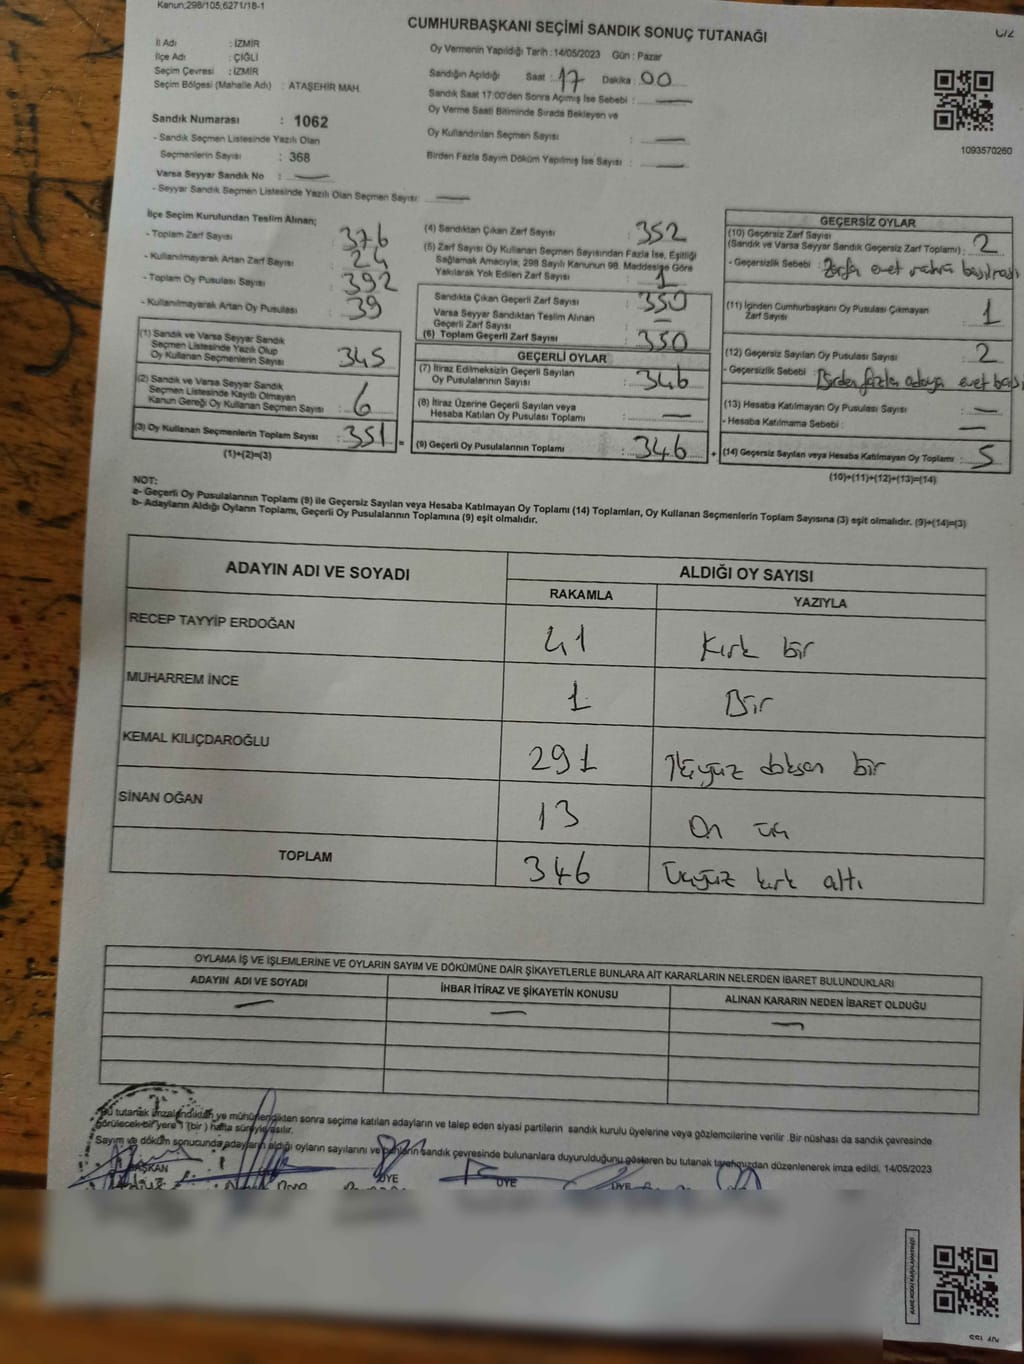 Kanun;298/105;6271/18-1
CUMHURBAŞKANI SEÇİMİ SANDIK SONUÇ TUTANAĞI
İl Adı : İZMİR
İlçe Adı : ÇİĞLİ
Seçim Çevresi : İZMİR
Seçim Bölgesi (Mahalle Adı) : ATAŞEHİR MAH.
Sandık Numarası : 1062
- Sandık Seçmen Listesinde Yazılı Olan
Seçmenlerin Sayısı : 368
Varsa Seyyar Sandık No : —
- Seyyar Sandık Seçmen Listesinde Yazılı Olan Seçmen Sayısı: —
Oy Vermenin Yapıldığı Tarih : 14/05/2023 Gün : Pazar
Sandığın Açıldığı Saat : 17 Dakika : 00
Sandık Saat 17:00'den Sonra Açımış İse Sebebi : —
Oy Verme Saati Bitiminde Sırada Bekleyen ve
Oy Kullandırılan Seçmen Sayısı : —
Birden Fazla Sayım Döküm Yapılmış İse Sayısı : —
1093570260
İlçe Seçim Kurulundan Teslim Alınan;
- Toplam Zarf Sayısı : 376
- Kullanılmayarak Artan Zarf Sayısı : 24
- Toplam Oy Pusulası Sayısı : 392
- Kullanılmayarak Artan Oy Pusulası : 39
(1) Sandık ve Varsa Seyyar Sandık
Seçmen Listesinde Yazılı Olup
Oy Kullanan Seçmenlerin Sayısı : 345
(2) Sandık ve Varsa Seyyar Sandık
Seçmen Listesinde Kayıtlı Olmayan
Kanun Gereği Oy Kullanan Seçmen Sayısı : 6
(3) Oy Kullanan Seçmenlerin Toplam Sayısı : 351 =
(1)+(2)=(3)
(4) Sandıktan Çıkan Zarf Sayısı : 352
(5) Zarf Sayısı Oy Kullanan Seçmen Sayısından Fazla İse, Eşitliği
Sağlamak Amacıyla, 298 Sayılı Kanunun 98. Maddesine Göre
Yakılarak Yok Edilen Zarf Sayısı : 1
Sandıkta Çıkan Geçerli Zarf Sayısı : 350
Varsa Seyyar Sandıktan Teslim Alınan
Geçerli Zarf Sayısı : —
(6) Toplam Geçerli Zarf Sayısı : 350
GEÇERLİ OYLAR
(7) İtiraz Edilmeksizin Geçerli Sayılan
Oy Pusulalarının Sayısı : 346
(8) İtiraz Üzerine Geçerli Sayılan veya
Hesaba Katılan Oy Pusulası Toplamı : —
(9) Geçerli Oy Pusulalarının Toplamı : 346 +
GEÇERSİZ OYLAR
(10) Geçersiz Zarf Sayısı
(Sandık ve Varsa Seyyar Sandık Geçersiz Zarf Toplamı) : 2
- Geçersizlik Sebebi : Zarfa evet mührü basılması
(11) İçinden Cumhurbaşkanı Oy Pusulası Çıkmayan
Zarf Sayısı : 1
(12) Geçersiz Sayılan Oy Pusulası Sayısı : 2
- Geçersizlik Sebebi : Birden fazla adaya evet
(13) Hesaba Katılmayan Oy Pusulası Sayısı : —
- Hesaba Katılmama Sebebi : —
(14) Geçersiz Sayılan veya Hesaba Katılmayan Oy Toplamı : 5
(10)+(11)+(12)+(13)=(14)
NOT:
a- Geçerli Oy Pusulalarının Toplamı (9) ile Geçersiz Sayılan veya Hesaba Katılmayan Oy Toplamı (14) Toplamları, Oy Kullanan Seçmenlerin Toplam Sayısına (3) eşit olmalıdır. (9)+(14)=(3)
b- Adayların Aldığı Oyların Toplamı, Geçerli Oy Pusulalarının Toplamına (9) eşit olmalıdır.
ADAYIN ADI VE SOYADI
ALDIĞI OY SAYISI
RAKAMLA YAZIYLA
RECEP TAYYİP ERDOĞAN 41 Kırk bir
MUHARREM İNCE 1 Bir
KEMAL KILIÇDAROĞLU 291 İkiyüz doksan bir
SİNAN OĞAN 13 On üç
TOPLAM 346 Üçyüz kırk altı
OYLAMA İŞ VE İŞLEMLERİNE VE OYLARIN SAYIM VE DÖKÜMÜNE DAİR ŞİKAYETLERLE BUNLARA AİT KARARLARIN NELERDEN İBARET BULUNDUKLARI
ADAYIN ADI VE SOYADI İHBAR İTİRAZ VE ŞİKAYETİN KONUSU ALINAN KARARIN NEDEN İBARET OLDUĞU
— — —
Bu tutanak imzalandıktan ve mühürlendikten sonra seçime katılan adayların ve talep eden siyasi partilerin sandık kurulu üyelerine veya gözlemcilerine verilir. Bir nüshası da sandık çevresinde
görülecek bir yere 1 (bir) hafta süreyle asılır.
Sayım ve döküm sonucunda adayların aldığı oyların sayılarını ve bunların sandık çevresinde bulunanlara duyurulduğunu gösteren bu tutanak tarafımızdan düzenlenerek imza edildi. 14/05/2023
BAŞKAN ÜYE ÜYE ÜYE